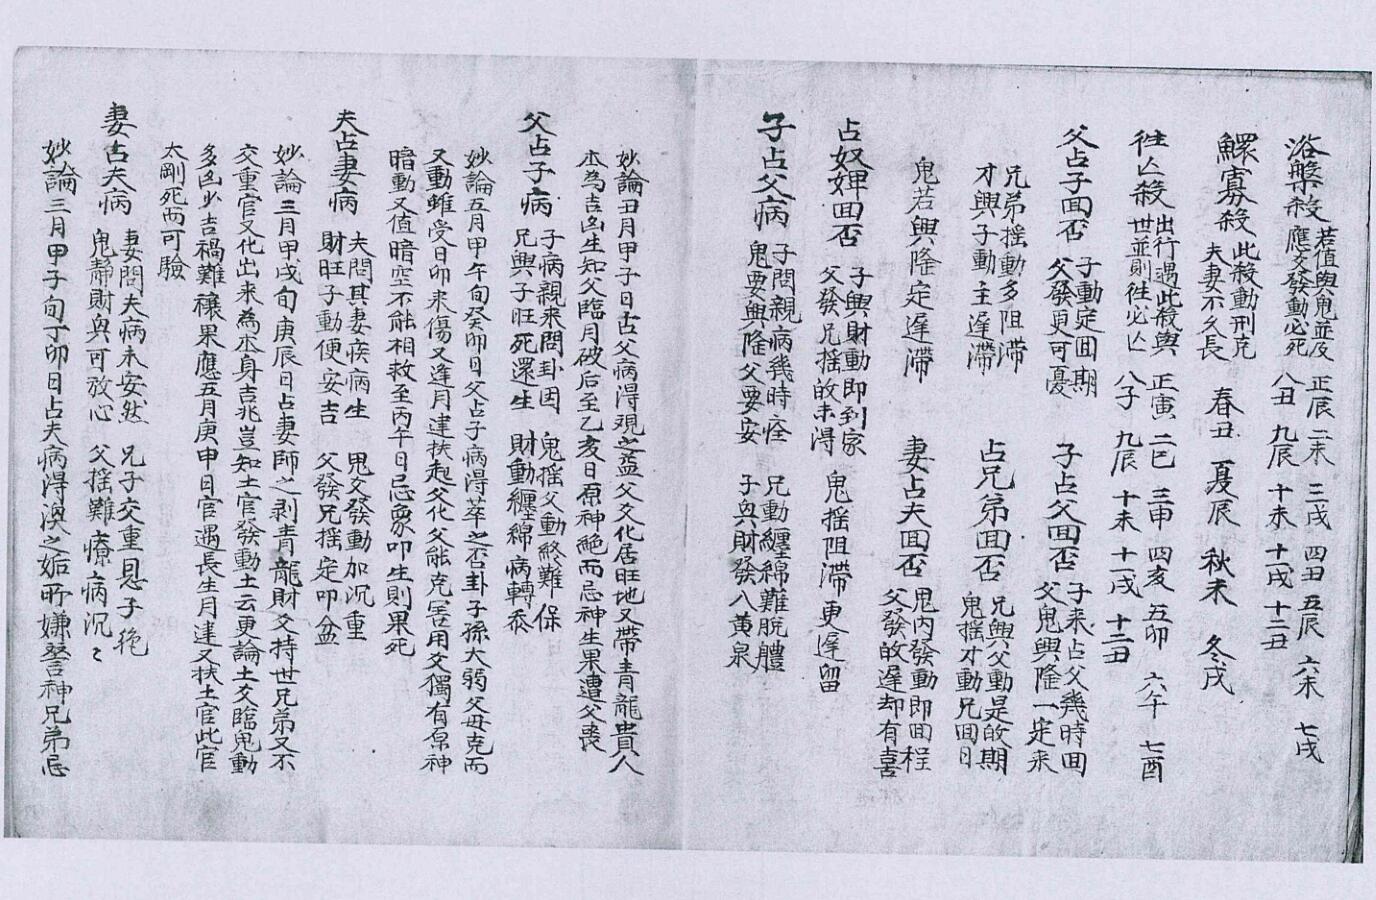 浴盤殺 若值與鬼並及 應爻發動必死 正辰 二未 三戌 四丑 五辰 六未 七戌
八丑 九辰 十未 十一戌 十二丑
鰥寡殺 此殺動刑克 夫妻不久長 春丑 夏辰 秋未 冬戌
徃亾殺 出行遇此殺與 世並則徃必亾 正寅 二巳 三申 四亥 五卯 六午 七酉
八子 九辰 十未 十一戌 十二丑
父占子回否 子動定回期 父發更可憂 子占父回否 子来占父幾時回 父鬼興隆一定来
兄弟摇動多阻滞 才興子動主遅滞 占兄弟回否 兄興父動是的期 鬼摇才動兄回日
鬼若興隆定遅滞 妻占夫回否 鬼内發動即回程 父發的遅却有喜
占奴婢回否 子興財動即到家 父發兄摇的未得 鬼摇阻滞更遅留
子占父病 子問親病幾時痊 鬼要興隆父要安 兄動纏綿難脫體 子興財發八黄泉
妙論丑月甲子日占父病得观之益父爻化居旺地又帶青龍貴人
本為吉凶生知父臨月破后至乙亥日原神絶而忌神生果遭父喪
父占子病 子病親来問卦因 兄興子旺死還生 鬼摇父動終難保 財動纏綿病轉泰
妙論五月甲午旬癸卯日父占子病得萃之否卦子孫大弱父母克而
又動雖受日卯来傷又逢月建扶起父化父能克害用爻獨有原神
暗動又值暗空不能相救至丙午日忌象叩生則果死
夫占妻病 夫問其妻疾病生 財旺子動便安吉 鬼爻發動加沉重 父發兄摇定叩盆
妙論三月甲戌旬庚辰日占妻師之剥青龍財爻持世兄弟又不
交重官又化出来為本身吉兆豈知土官發動土云更論土爻臨鬼動
多凶少吉禍難禳果應五月庚申日官遇長生月建又扶土官此官
太剛死而可驗
妻占夫病 妻問夫病未安然 鬼靜財興可放心 兄子交重恩子絶 父摇難療病沉〻
妙論三月甲子旬丁卯日占夫病得渙之姤所嫌咎神兄弟忌